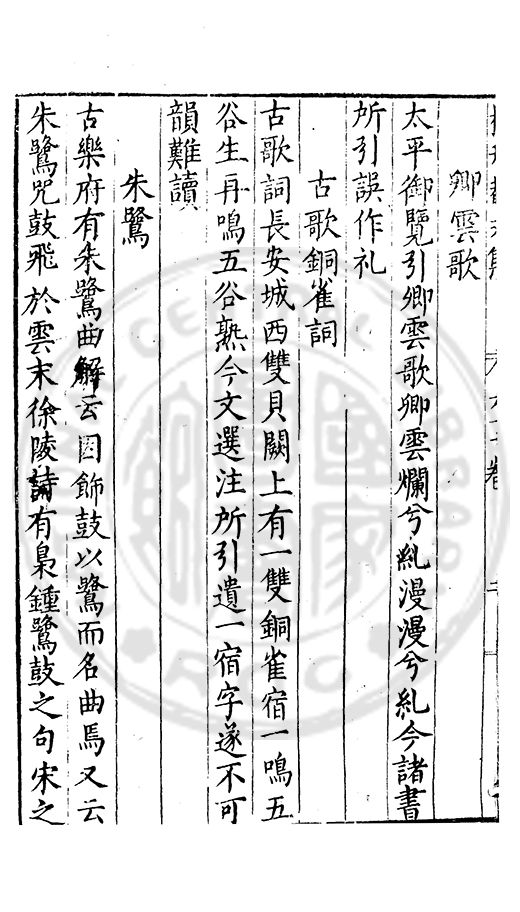 卿雲歌
太平御覽引卿雲歌卿雲爛兮糺漫漫兮糺今諸書
所引誤作礼
古歌銅雀詞
古歌詞長安城西雙貝闕上有一雙銅雀宿一鳴五
谷生再鳴五谷熟今文選注所引遺一宿字遂不可
韻難讀
朱鷺
古樂府有朱鷺曲解云因飾鼓以鷺而名曲焉又云
朱鷺咒鼓飛於雲末徐陵詩有梟鍾鷺鼓之句宋之